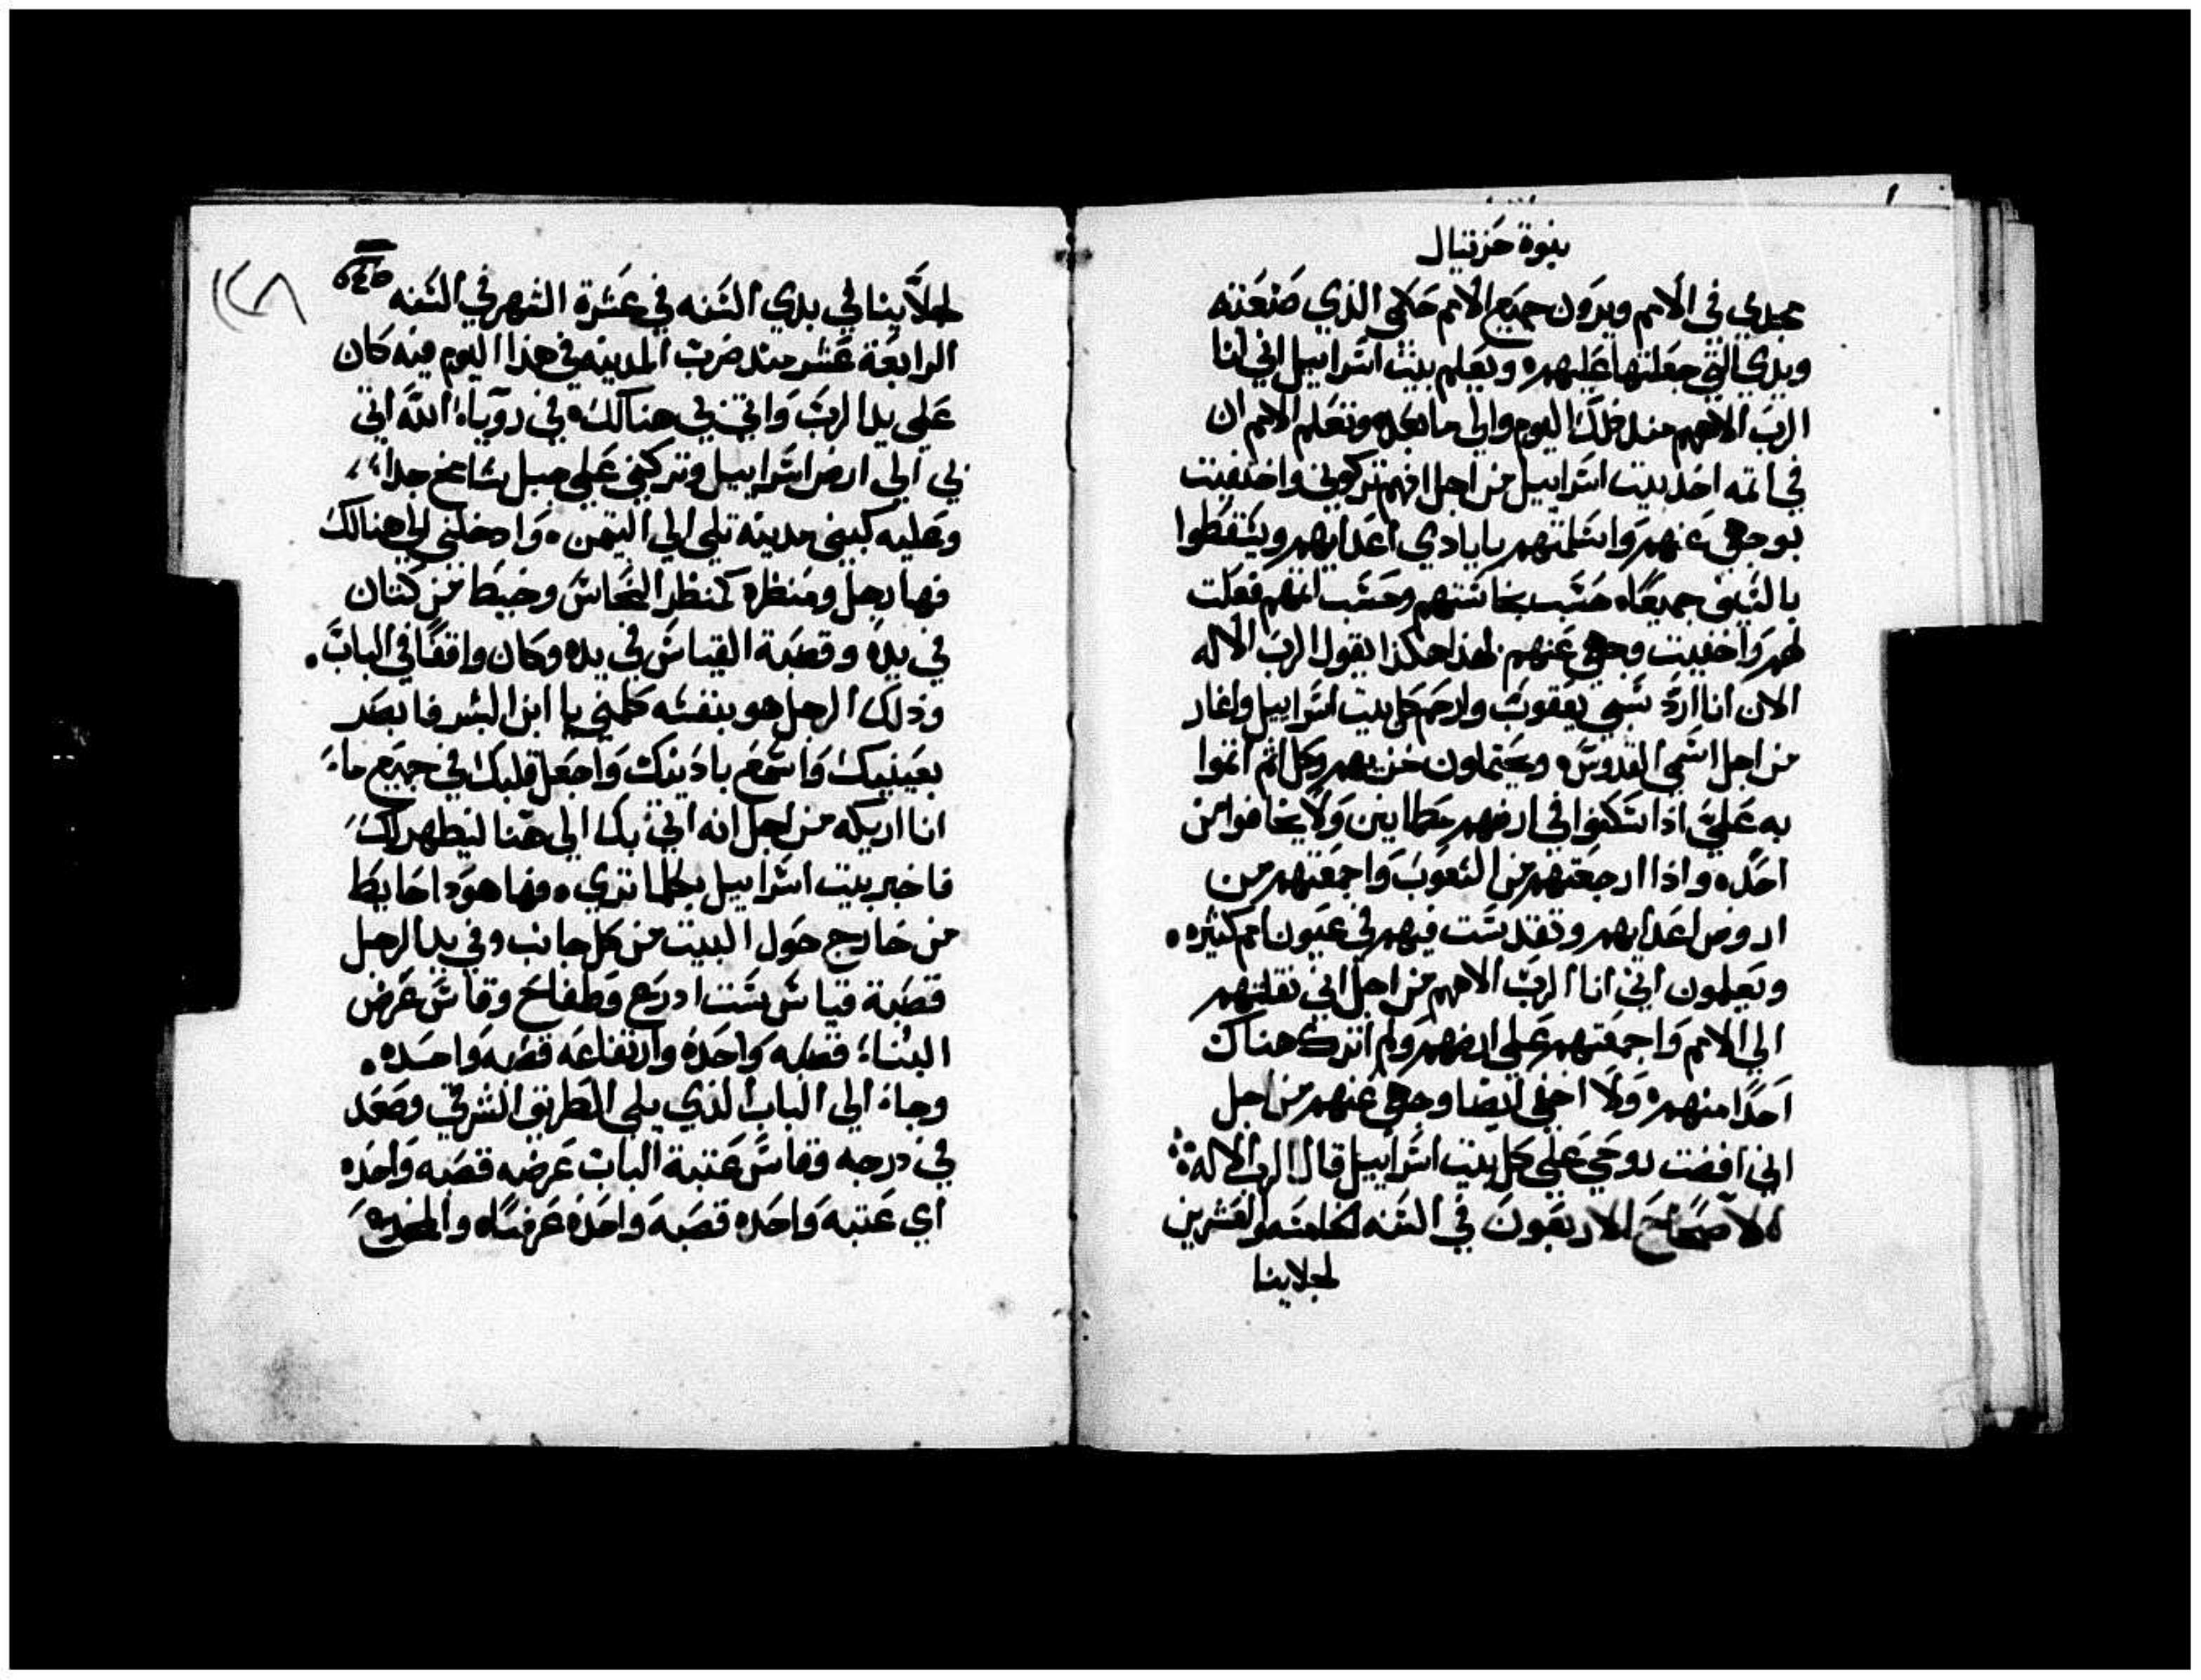 نبوة حزقيال
مجدي في الامم ويرون جميع الامم حكمي الذي صنعته
ويدي التي جعلتها عليهم ويعلم بيت اسراييل اني انا
الرب الاههم منذ ذلك اليوم والي ما بعده وتعلم الامم ان
في اتمه اخذ بيت اسراييل من اجل انهم تركوني واختفيت
بوجهي عنهم واسلمتهم بايادي اعدايهم ويسقطوا
بالسيف جميعا حسب نجاستهم وحسب اتمهم فعلت
لهم واخفيت وجهي عنهم لهذا هكذا يقول الرب الاله
الان انا ارد سبي يعقوب وارحم كل بيت اسراييل واغار
من اجل اسمي القدوس ويحتملون خزيهم وكل اثم اثموا
به علي اذا سكنوا في ارضهم مطمانين ولا يخافوا من
احد واذا ارجعتهم من الشعوب واجمعتهم من
اروض اعدايهم وتقدست فيهم في عيون امم كثيره
ويعلمون اني انا الرب الاههم من اجل اني نقلتهم
الي الامم واجمعتهم علي ارضهم ولم اترك هناك
احدا منهم ولا اخفي ايضا وجهي عنهم من اجل
اني افضت روحي علي كل بيت اسراييل قال الرب الاله
الاصحاح الاربعون في السنه الخامسه والعشرين
لجلاينا
لجلاينا في بدي السنه في عشرة الشهر في السنه
الرابعة عشر منذ ضربت المدينه في هذا اليوم فيه كان
علي يد الرب واتي بي هنالك في روياء الله اتي
بي الي ارض اسراييل وتركني علي جبل شامخ جدا
وعليه كبيني مدينه تلي الي التيمن وادخلني الي هنالك
فها رجل ومنظره كمنظر النحاس وخيط من كتان
في يده وقصبة القياس في يده وكان واقفا في الباب
وذلك الرجل هو بنفسه كلمني يا ابن البشر فابصر
بعينيك واسمع باذينك واجعل قلبك في جميع ما
انا اريكه من اجل انه اتي بك الي هنا ليظهر لك
فاخبر بيت اسراييل بكلما تري فها هوذا حايط
من خارج حول البيت من كل جانب وفي يد الرجل
قصبة قياس ست ادرع وطفاح وقاس عرض
البناء قصبه واحده وارتفاعه قصبه واحده
وجاء الي الباب الذي يلي الطريق الشرقي وصعد
في درجه وقاس عتبة الباب عرضه قصبه واحده
اي عتبه واحده قصبه واحده عرضا والمخدع